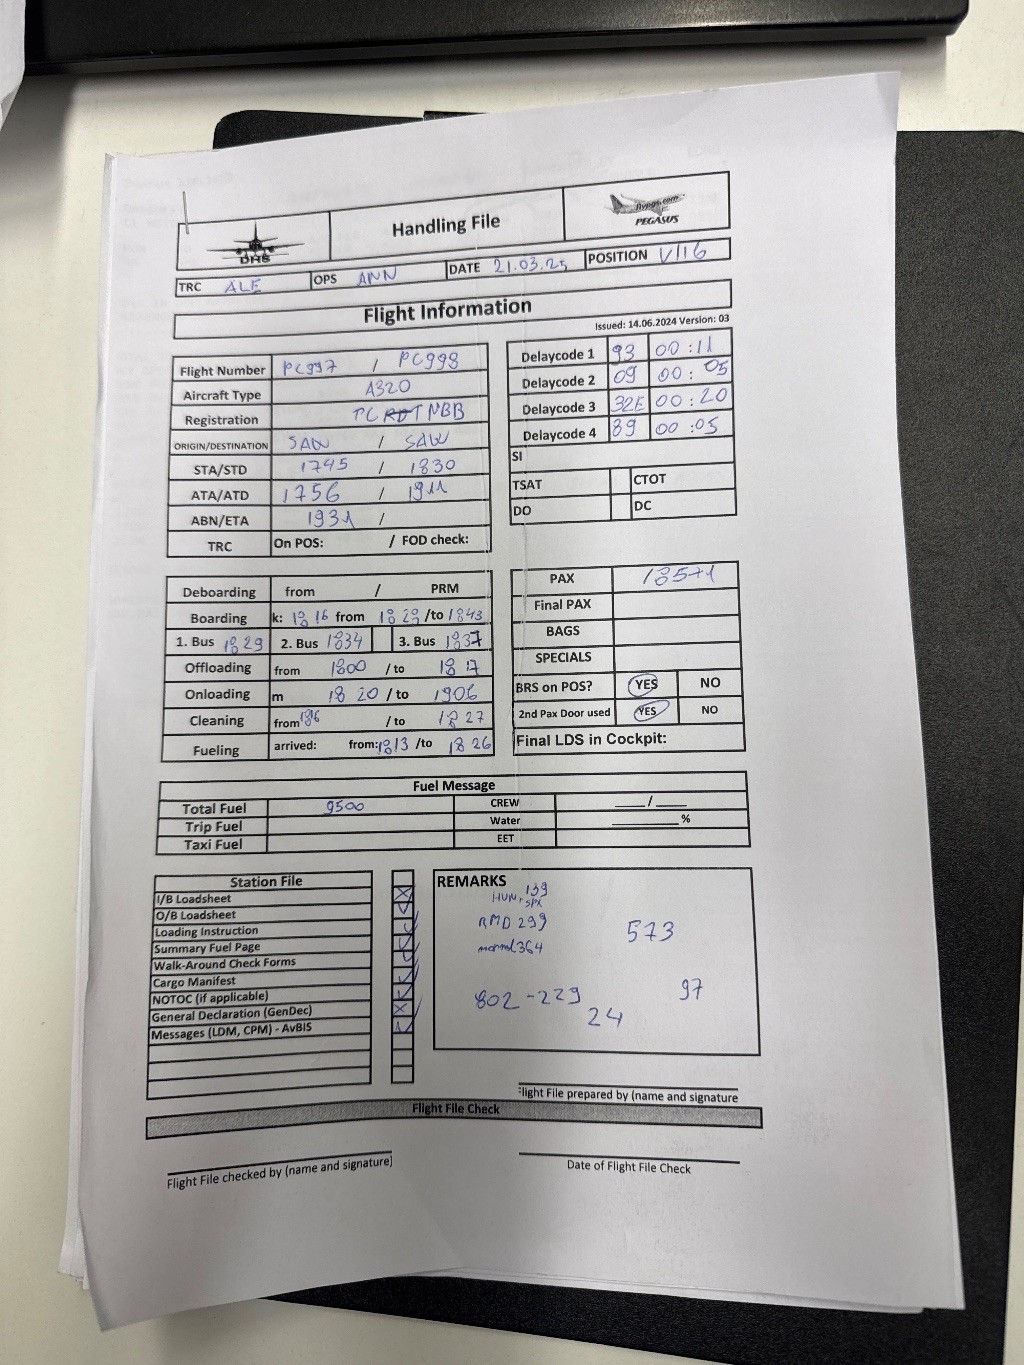 DHS
Handling File
flypgs.com
PEGASUS
TRC ALE OPS ANN DATE 21.03.25 POSITION V116
Flight Information
Issued: 14.06.2024 Version: 03
Flight Number PC997 / PC998
Aircraft Type A320
Registration TC NBB
ORIGIN/DESTINATION SAW / SAW
STA/STD 1745 / 1830
ATA/ATD 1756 / 1911
ABN/ETA 1931 /
TRC On POS: / FOD check:
Delaycode 1 93 00:11
Delaycode 2 09 00:05
Delaycode 3 32E 00:20
Delaycode 4 89 00:05
SI
TSAT CTOT
DO DC
Deboarding from / PRM
Boarding k: 1816 from 1829 /to 1843
1. Bus 1829 2. Bus 1834 3. Bus 1837
Offloading from 1800 / to 1817
Onloading m 1820 / to 1906
Cleaning from 1816 / to 1827
Fueling arrived: from: 1813 /to 1826
PAX 185+1
Final PAX
BAGS
SPECIALS
BRS on POS? YES NO
2nd Pax Door used YES NO
Final LDS in Cockpit:
Fuel Message
Total Fuel 9500 CREW ___/___
Trip Fuel Water ______ %
Taxi Fuel EET
Station File
I/B Loadsheet
O/B Loadsheet
Loading Instruction
Summary Fuel Page
Walk-Around Check Forms
Cargo Manifest
NOTOC (if applicable)
General Declaration (GenDec)
Messages (LDM, CPM) - AvBIS
REMARKS
139
SPX
RMD 299
364
573
802 - 229
24
97
Flight File prepared by (name and signature
Flight File Check
Flight File checked by (name and signature)
Date of Flight File Check